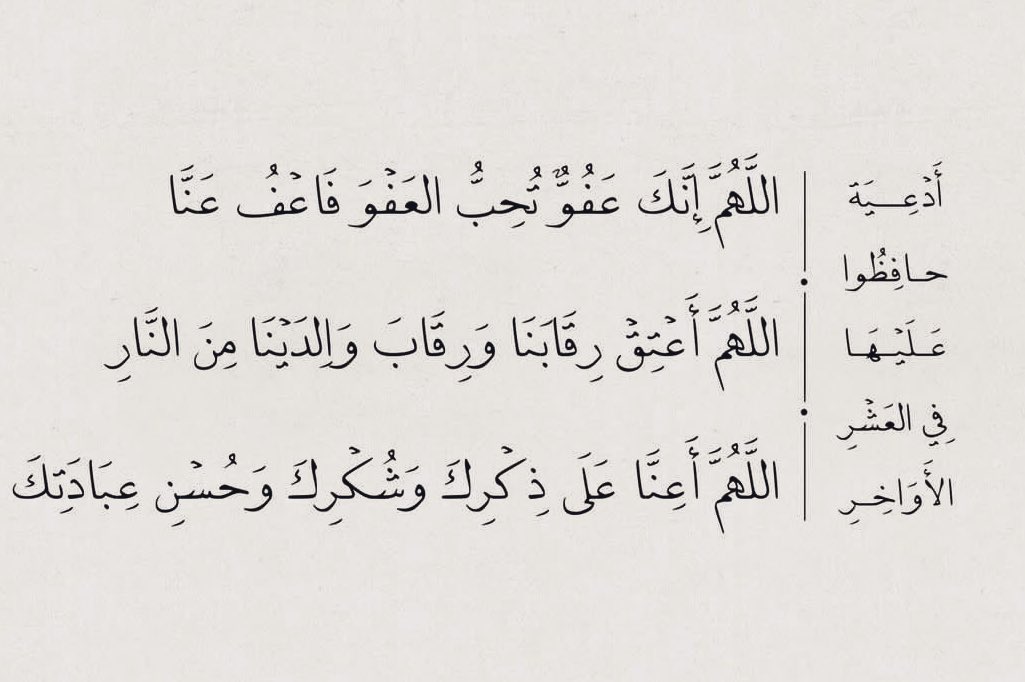 أَدْعِـــيَة
حـافِظُوا
عَـلَيْـهَـا
فِي العَشْرِ
الأَوَاخِـرِ
اللَّهُمَّ إِنَّكَ عَفُوٌّ تُحِبُّ العَفْوَ فَاعْفُ عَنَّا
اللَّهُمَّ أَعْتِقْ رِقَابَنَا وَرِقَابَ وَالِدَيْنَا مِنَ النَّارِ
اللَّهُمَّ أَعِنَّا عَلَى ذِكْرِكَ وَشُكْرِكَ وَحُسْنِ عِبَادَتِكَ